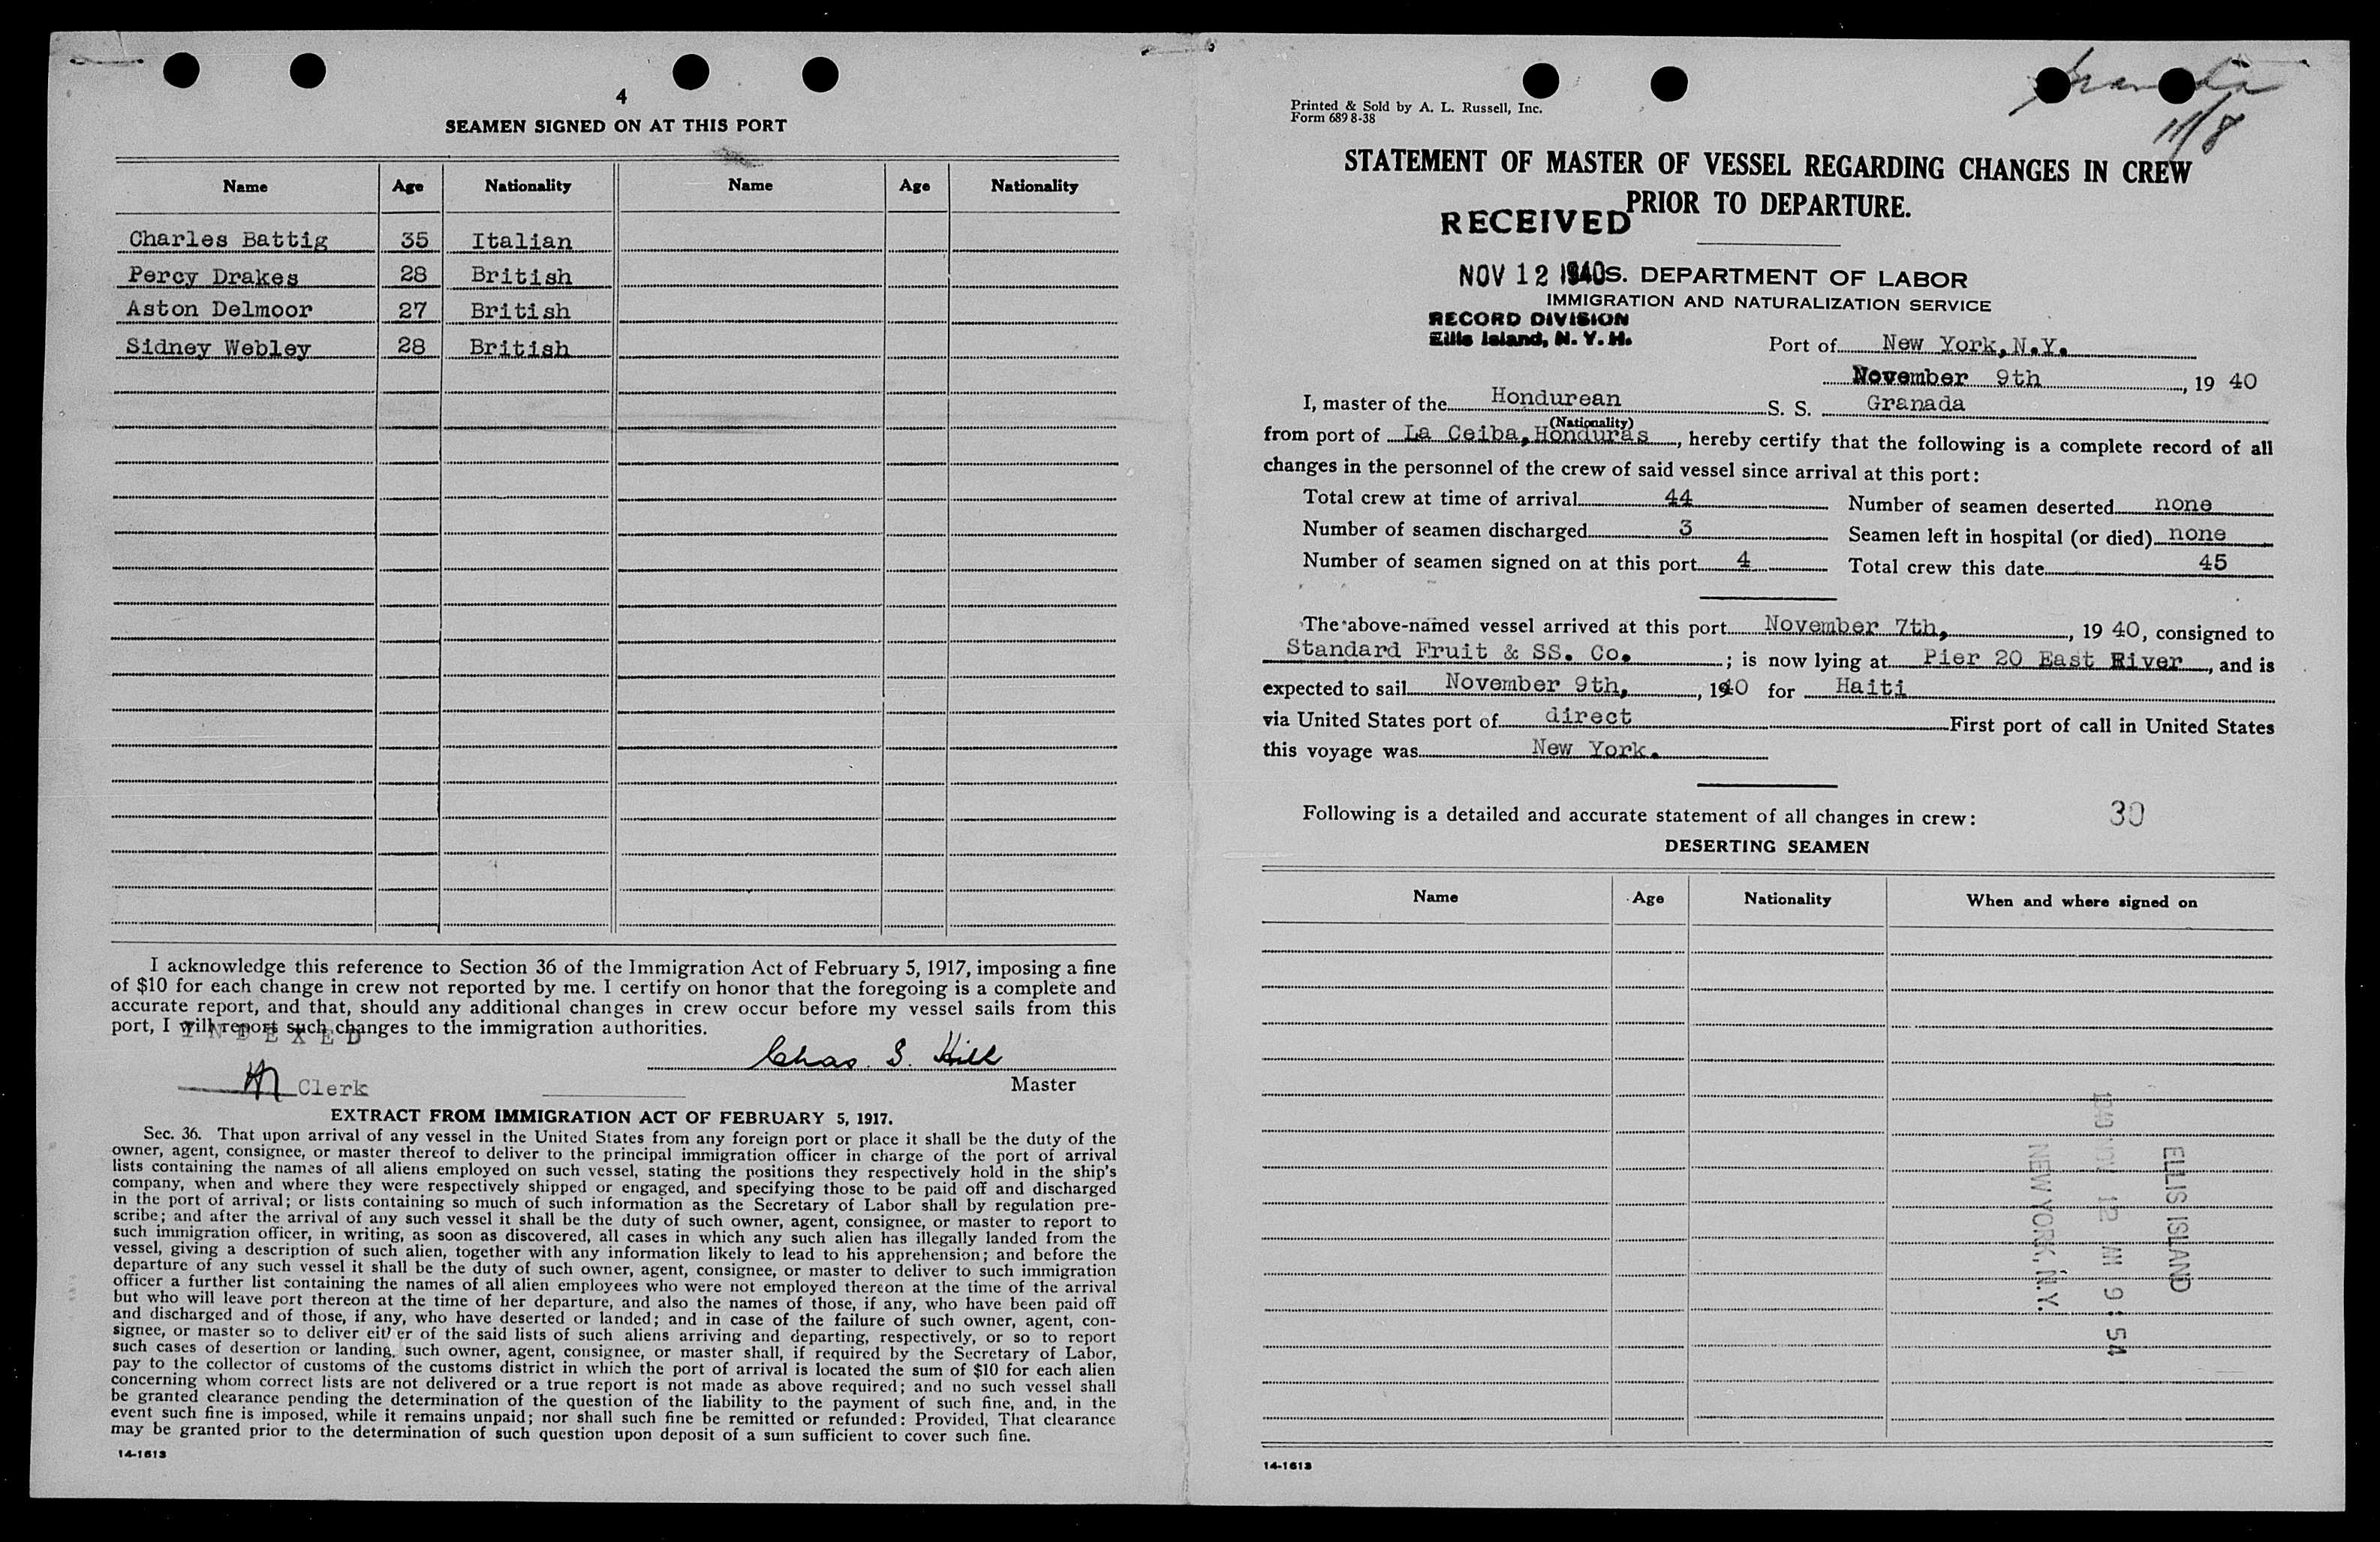 4
SEAMEN SIGNED ON AT THIS PORT
Name Age Nationality Name Age Nationality
Charles Battig 35 Italian
Percy Drakes 28 British
Aston Delmoor 27 British
Sidney Webley 28 British
I acknowledge this reference to Section 36 of the Immigration Act of February 5, 1917, imposing a fine
of $10 for each change in crew not reported by me. I certify on honor that the foregoing is a complete and
accurate report, and that, should any additional changes in crew occur before my vessel sails from this
port, I will report such changes to the immigration authorities.
INDEXED
Chas. S. Hill
Clerk
Master
EXTRACT FROM IMMIGRATION ACT OF FEBRUARY 5, 1917.
Sec. 36. That upon arrival of any vessel in the United States from any foreign port or place it shall be the duty of the
owner, agent, consignee, or master thereof to deliver to the principal immigration officer in charge of the port of arrival
lists containing the names of all aliens employed on such vessel, stating the positions they respectively hold in the ship's
company, when and where they were respectively shipped or engaged, and specifying those to be paid off and discharged
in the port of arrival; or lists containing so much of such information as the Secretary of Labor shall by regulation pre-
scribe; and after the arrival of any such vessel it shall be the duty of such owner, agent, consignee, or master to report to
such immigration officer, in writing, as soon as discovered, all cases in which any such alien has illegally landed from the
vessel, giving a description of such alien, together with any information likely to lead to his apprehension; and before the
departure of any such vessel it shall be the duty of such owner, agent, consignee, or master to deliver to such immigration
officer a further list containing the names of all alien employees who were not employed thereon at the time of the arrival
but who will leave port thereon at the time of her departure, and also the names of those, if any, who have been paid off
and discharged and of those, if any, who have deserted or landed; and in case of the failure of such owner, agent, con-
signee, or master so to deliver either of the said lists of such aliens arriving and departing, respectively, or so to report
such cases of desertion or landing, such owner, agent, consignee, or master shall, if required by the Secretary of Labor,
pay to the collector of customs of the customs district in which the port of arrival is located the sum of $10 for each alien
concerning whom correct lists are not delivered or a true report is not made as above required; and no such vessel shall
be granted clearance pending the determination of the question of the liability to the payment of such fine, and, in the
event such fine is imposed, while it remains unpaid; nor shall such fine be remitted or refunded: Provided, That clearance
may be granted prior to the determination of such question upon deposit of a sum sufficient to cover such fine.
14-1613
Printed & Sold by A. L. Russell, Inc.
Form 689 8-38
11/8
STATEMENT OF MASTER OF VESSEL REGARDING CHANGES IN CREW
PRIOR TO DEPARTURE.
RECEIVED
NOV 12 1940
S. DEPARTMENT OF LABOR
IMMIGRATION AND NATURALIZATION SERVICE
RECORD DIVISION
Ellis Island, N. Y. H.
Port of New York, N.Y.
November 9th, 19 40
I, master of the Hondurean S. S. Granada
(Nationality)
from port of La Ceiba, Honduras, hereby certify that the following is a complete record of all
changes in the personnel of the crew of said vessel since arrival at this port:
Total crew at time of arrival 44 Number of seamen deserted none
Number of seamen discharged 3 Seamen left in hospital (or died) none
Number of seamen signed on at this port 4 Total crew this date 45
The above-named vessel arrived at this port November 7th, , 19 40, consigned to
Standard Fruit & SS. Co. ; is now lying at Pier 20 East River, and is
expected to sail November 9th, , 1940 for Haiti
via United States port of direct First port of call in United States
this voyage was New York.
Following is a detailed and accurate statement of all changes in crew: 30
DESERTING SEAMEN
Name Age Nationality When and where signed on
ELLIS ISLAND
1940 NOV 12 AM 9:54
NEW YORK, N.Y.
14-1613